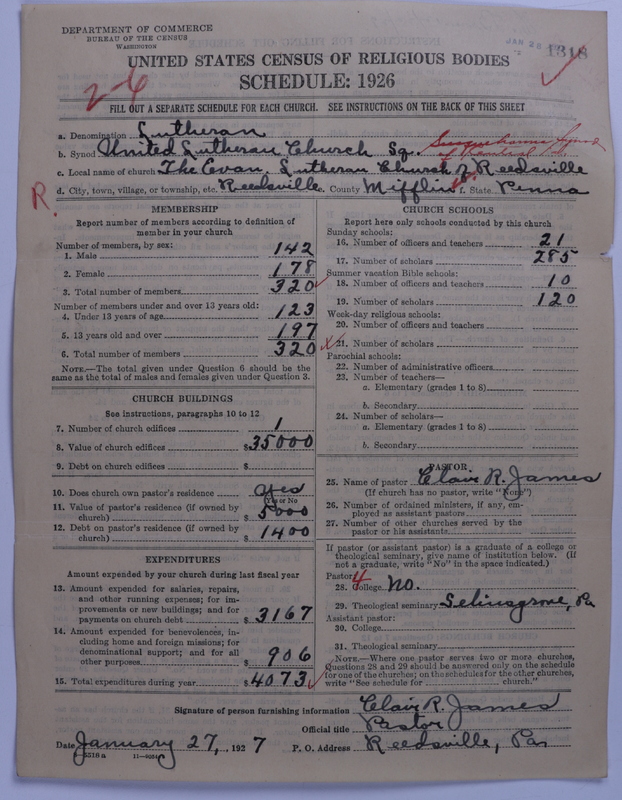 DEPARTMENT OF COMMERCE
BUREAU OF THE CENSUS
WASHINGTON
JAN 28
1318
UNITED STATES CENSUS OF RELIGIOUS BODIES
SCHEDULE: 1926
2-6
FILL OUT A SEPARATE SCHEDULE FOR EACH CHURCH. SEE INSTRUCTIONS ON THE BACK OF THIS SHEET
a. Denomination Lutheran
b. Synod United Lutheran Church Sq. Susquehanna Synod of Central Pa.
c. Local name of church The Evan. Lutheran Church of Reedsville
d. City, town, village, or township, etc. Reedsville e. County Mifflin f. State Penna
R.
MEMBERSHIP
Report number of members according to definition of
member in your church
Number of members, by sex:
1. Male 142
2. Female 178
3. Total number of members 320
Number of members under and over 13 years old:
4. Under 13 years of age 123
5. 13 years old and over 197
6. Total number of members 320
NOTE.—The total given under Question 6 should be the
same as the total of males and females given under Question 3.
CHURCH BUILDINGS
See instructions, paragraphs 10 to 12
7. Number of church edifices 1
8. Value of church edifices $35000
9. Debt on church edifices $
10. Does church own pastor's residence yes
(Yes or No)
11. Value of pastor's residence (if owned by
church) $5000
12. Debt on pastor's residence (if owned by
church) $1400
EXPENDITURES
Amount expended by your church during last fiscal year
13. Amount expended for salaries, repairs,
and other running expenses; for im-
provements or new buildings; and for
payments on church debt $3167
14. Amount expended for benevolences, in-
cluding home and foreign missions; for
denominational support; and for all
other purposes $906
15. Total expenditures during year $4073
CHURCH SCHOOLS
Report here only schools conducted by this church
Sunday schools:
16. Number of officers and teachers 21
17. Number of scholars 285
Summer vacation Bible schools:
18. Number of officers and teachers 10
19. Number of scholars 120
Week-day religious schools:
20. Number of officers and teachers
21. Number of scholars
Parochial schools:
22. Number of administrative officers
23. Number of teachers—
a. Elementary (grades 1 to 8)
b. Secondary
24. Number of scholars—
a. Elementary (grades 1 to 8)
b. Secondary
PASTOR
25. Name of pastor Clair R. James
(If church has no pastor, write "None")
26. Number of ordained ministers, if any, em-
ployed as assistant pastors
27. Number of other churches served by the
pastor or his assistants
If pastor (or assistant pastor) is a graduate of a college or
theological seminary, give name of institution below. (If
not a graduate, write "No" in the space indicated.)
Pastor: 4
28. College No.
29. Theological seminary Selinsgrove, Pa
Assistant pastor:
30. College
31. Theological seminary
NOTE.—Where one pastor serves two or more churches,
Questions 28 and 29 should be answered only on the schedule
for one of the churches; on the schedules for the other churches,
write "See schedule for church."
Signature of person furnishing information Clair R. James
Official title Pastor
Date January 27, 1927 P. O. Address Reedsville, Pa